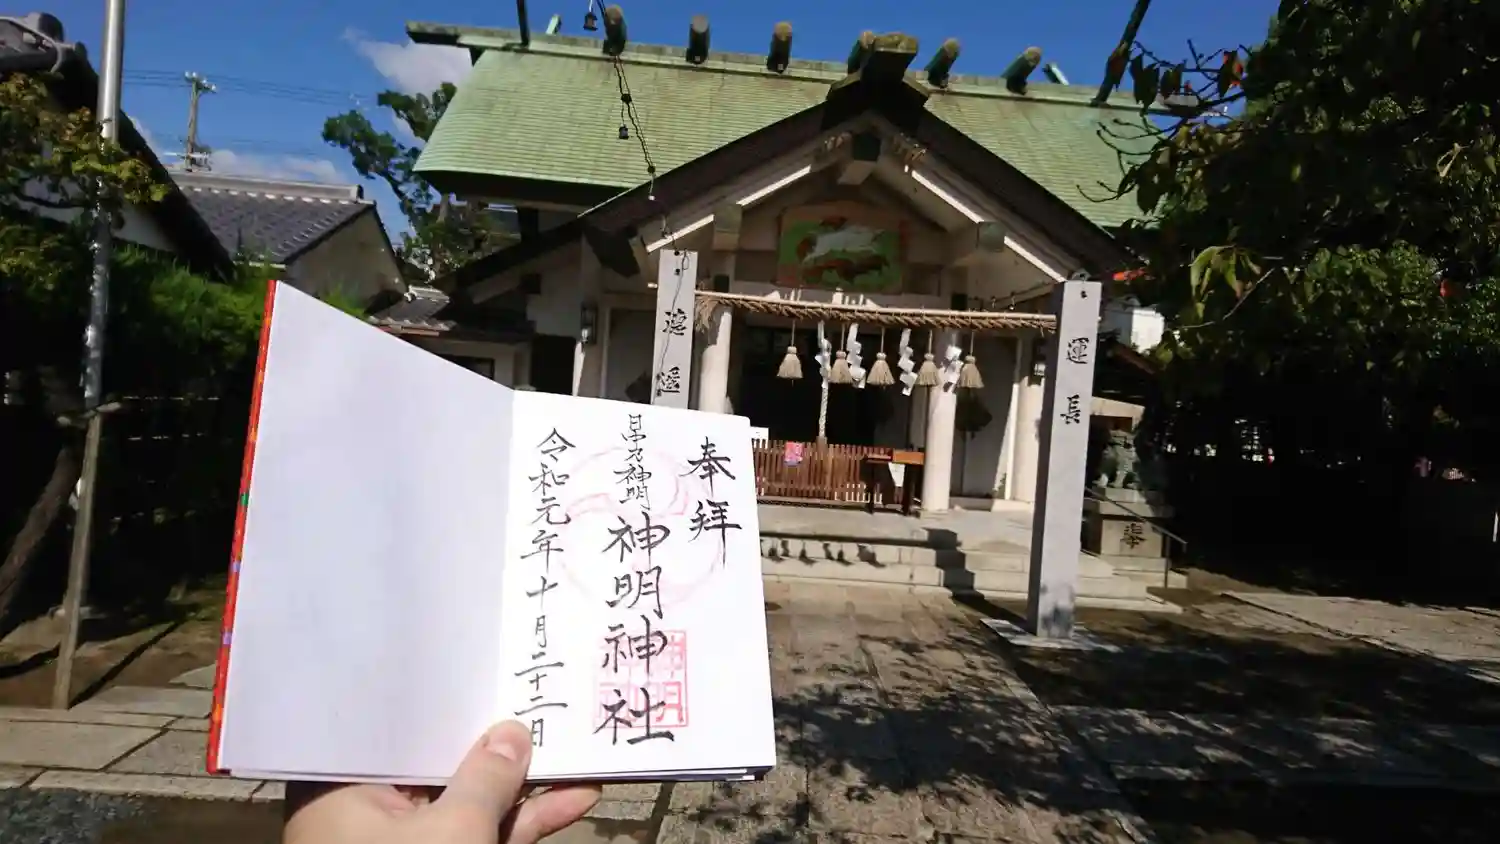 奉拝
乃神明
神明神社
令和元年十月二十二日
運長
奉